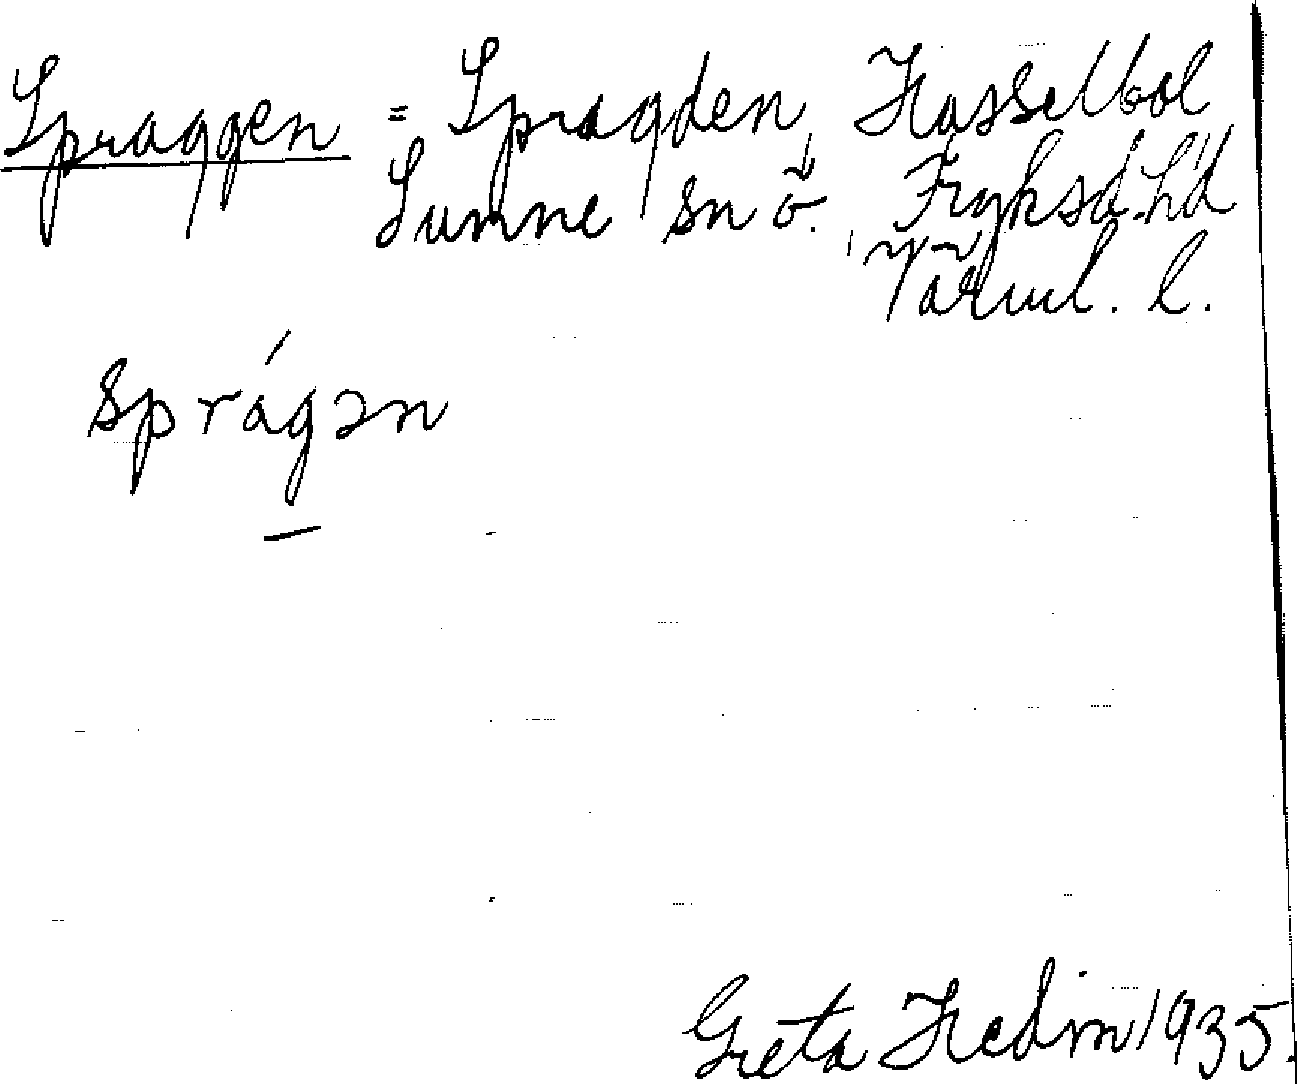 Spraggen = Spragden, Hasselbol
Sunne sn ö. Fryksd. hd
Värml. l.
sprágən
Greta Hedin 1935.